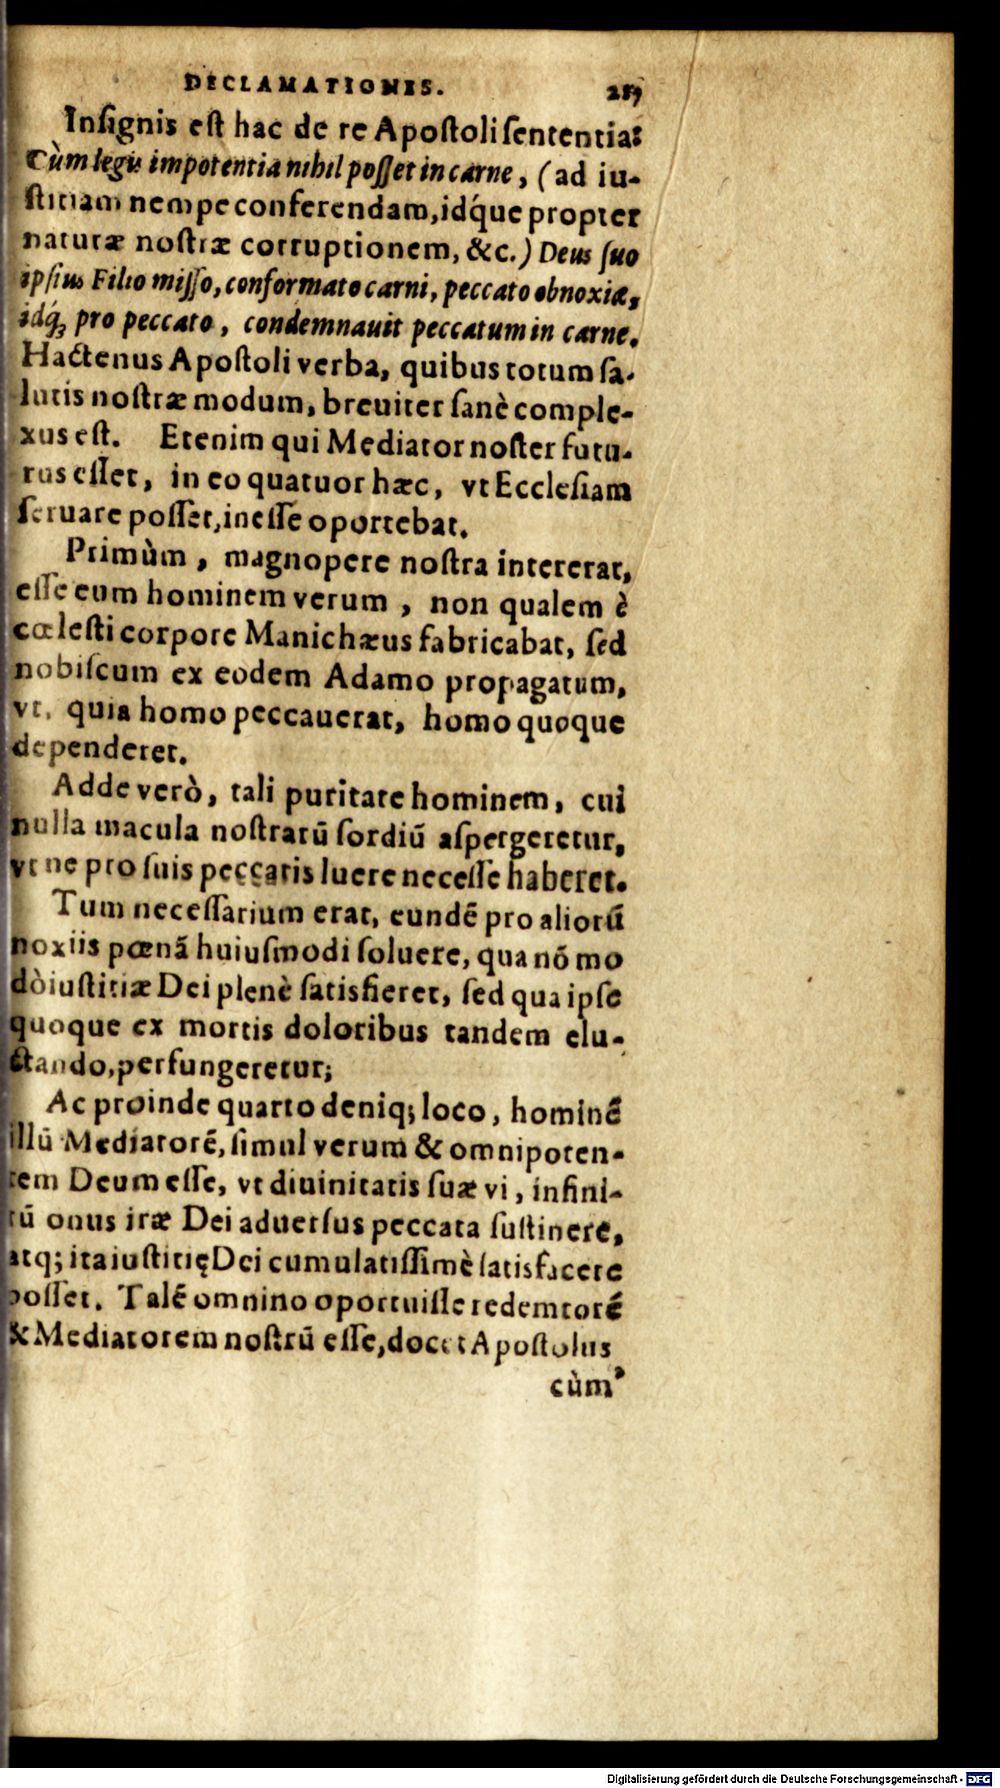 DECLAMATIONIS. 217
Inſignis eſt hac de re Apoſtoli ſententia:
Cùm legis impotentia nihil poſſet in carne, (ad iu-
ſtitiam nempe conferendam, idq́ue propter
naturæ noſtræ corruptionem, &c.) Deus ſuo
ipſius Filio miſſo, conformato carni, peccato obnoxiæ,
idq́; pro peccato, condemnauit peccatum in carne.
Hactenus Apoſtoli verba, quibus totum ſa-
lutis noſtræ modum, breuiter ſanè comple-
xus eſt. Etenim qui Mediator noſter futu-
rus eſſet, in eo quatuor hæc, vt Eccleſiam
ſeruare poſſet, ineſſe oportebat.
Primùm, magnopere noſtra intererat,
eſſe eum hominem verum, non qualem è
cœleſti corpore Manichæus fabricabat, ſed
nobiſcum ex eodem Adamo propagatum,
vt, quia homo peccauerat, homo quoque
dependeret.
Adde verò, tali puritate hominem, cui
nulla macula noſtratū ſordiū aſpergeretur,
vt ne pro ſuis peccatis luere neceſſe haberet.
Tum neceſſarium erat, eundē pro aliorū
noxiis pœnā huiuſmodi ſoluere, qua nō mo
dò iuſtitiæ Dei plenè ſatisfieret, ſed qua ipſe
quoque ex mortis doloribus tandem elu-
ctando, perfungeretur;
Ac proinde quarto deniq; loco, hominē
illū Mediatorē, ſimul verum & omnipoten-
tem Deum eſſe, vt diuinitatis ſuæ vi, infini-
tū onus iræ Dei aduerſus peccata ſuſtinere,
atq; ita iuſtitię Dei cumulatiſſimè ſatisfacere
poſſet. Talē omnino oportuiſſe redemtorē
& Mediatorem noſtrū eſſe, docet Apoſtolus
cùm
Digitalisierung gefördert durch die Deutsche Forschungsgemeinschaft - DFG